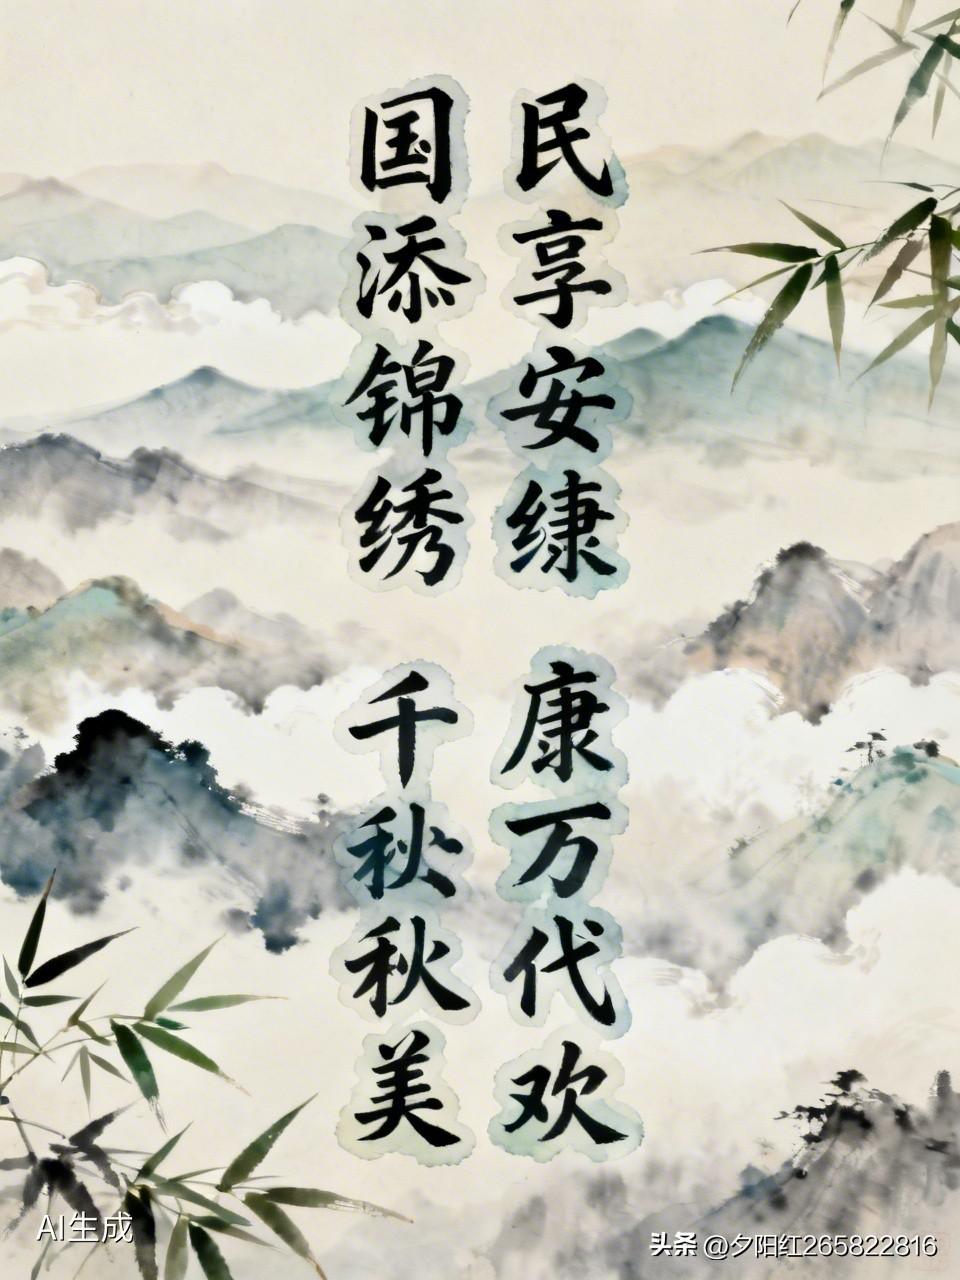 民享安
康万代欢
国添锦绣
千秋秋美
AI生成
头条 @夕阳红265822816